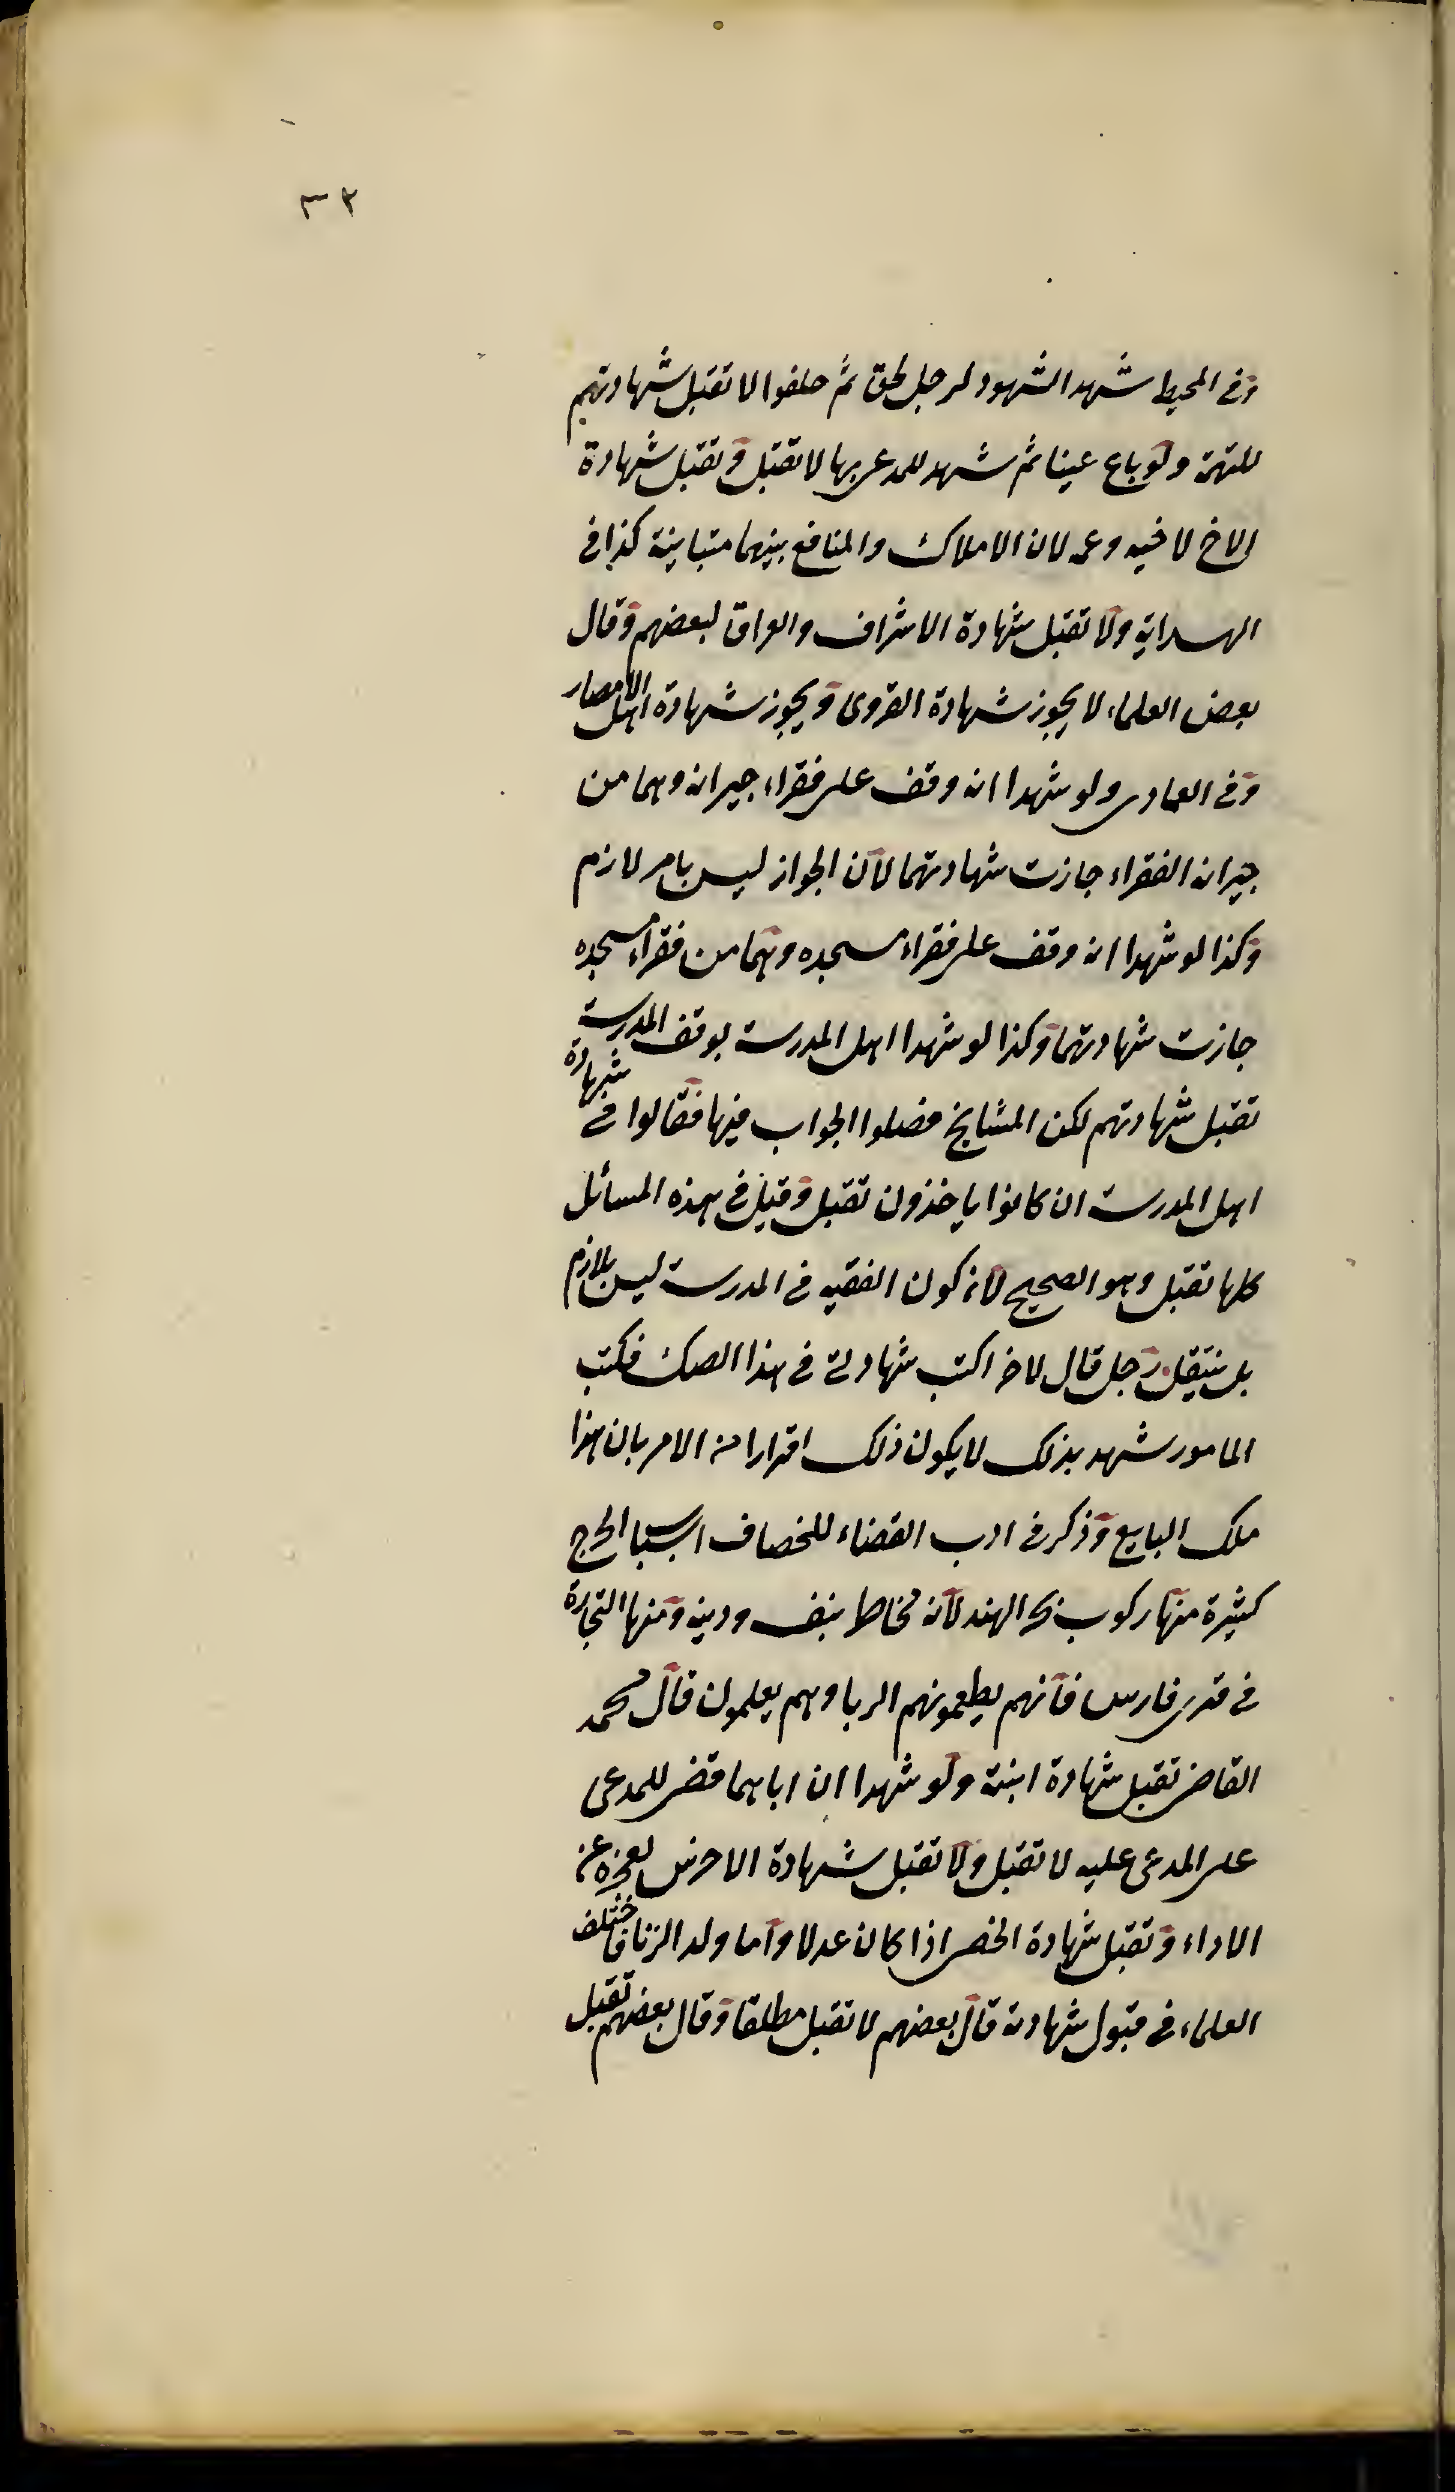 ٣٢
وفى المحيط شهد الشهود لرجل بحق ثم حلفوا لا تقبل شهادتهم
للتهمة ولو باع عينا ثم شهد للمدعى بها لا تقبل وتقبل شهادة
الاخ لاخيه وعمه لان الاملاك والمنافع بينهما متباينة كذا فى
الهداية ولا تقبل شهادة الاشراف والعراق لبعضهم وقال
بعض العلماء لا يجوز شهادة القروى ويجوز شهادة اهل الامصار
وفى العمادى ولو شهدا انه وقف على فقراء جيرانه وهما من
جيرانه الفقراء جازت شهادتهما لان الجوار ليس بامر لازم
وكذا لو شهدا انه وقف على فقراء مسجده وهما من فقراء مسجده
جازت شهادتهما وكذا لو شهدا اهل المدرسة بوقف المدرسة
تقبل شهادتهم لكن المشايخ فصلوا الجواب فيها فقالوا فى شهادة
اهل المدرسة ان كانوا ياخذون تقبل وقيل فى هذه المسائل
كلها تقبل وهو الصحيح لانه كون الفقيه فى المدرسة ليس بلازم
بل ينتقل رجل قال لاخر اكتب شهادتى فى هذا الصك فكتب
المامور شهد بذلك لا يكون ذلك اقرارا من الامر بان هذا
ملك البايع وذكر فى ادب القضاء للخصاف اسباب الجرح
كثيرة منها ركوب بحر الهند لانه مخاطر بنفسه ودينه ومنها التجارة
فى قرى فارس فانهم يطعمونهم الربا وهم يعلمون قال محمد
القاضى تقبل شهادة ابنه ولو شهدا ان اباهما قضى للمدعى
على المدعى عليه لا تقبل ولا تقبل شهادة الاخرس لعجزه عن
الاداء وتقبل شهادة الخصى اذا كان عدلا واما ولد الزنا فاختلف
العلماء فى قبول شهادته قال بعضهم لا تقبل مطلقا وقال بعضهم تقبل